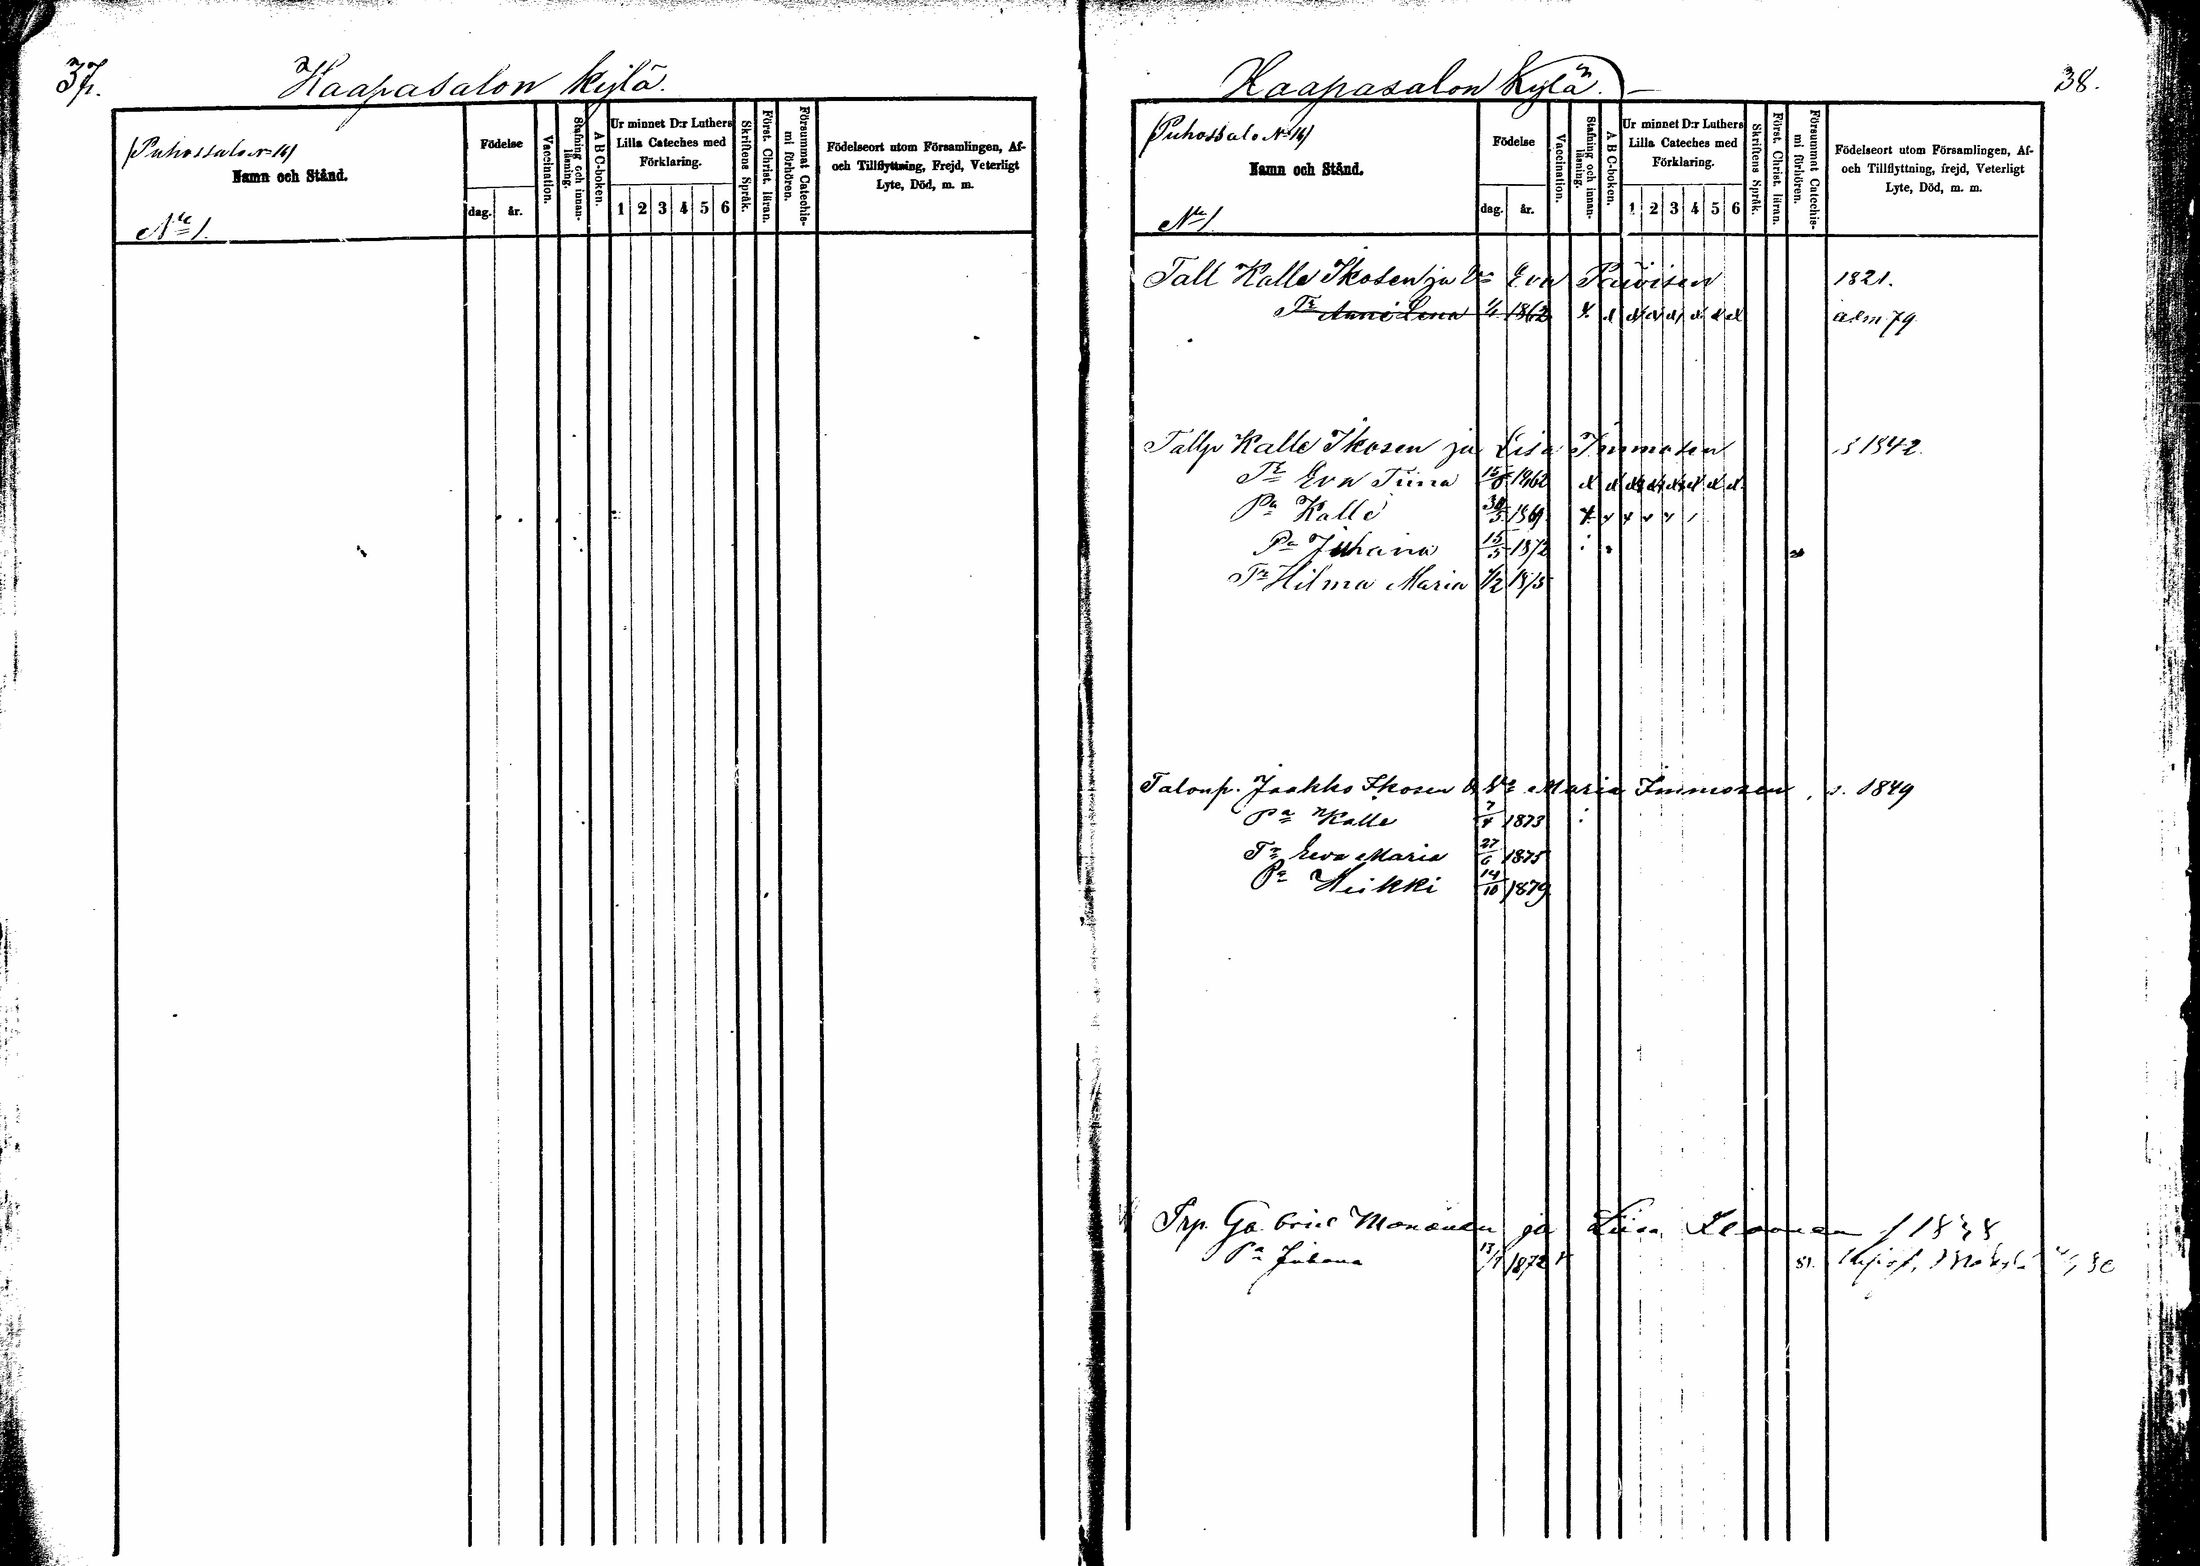 37.
Haapasalon kylä.
(Puhossalo No 16)
Namn och Stånd.
No 1.
Födelse
dag. år.
Vaccination.
Stafning och innan-läsning.
A B C-boken.
Ur minnet D:r Luthers Lilla Cateches med Förklaring.
1 2 3 4 5 6
Skriftens Språk.
Först. Christ. läran.
Försummat Catechis-mi förhören.
Födelseort utom Församlingen, Af-
och Tillflyttning, Frejd, Veterligt
Lyte, Död, m. m.
38.
Haapasalon Kylä.
(Puhossalo No 16)
Namn och Stånd.
No 1
Födelse
dag. år.
Vaccination.
Stafning och innan-läsning.
A B C-boken.
Ur minnet D:r Luthers Lilla Cateches med Förklaring.
1 2 3 4 5 6
Skriftens Språk.
Först. Christ. läran.
Försummat Catechis-mi förhören.
Födelseort utom Församlingen, Af-
och Tillflyttning, frejd, Veterligt
Lyte, Död, m. m.
Tall Kalle Ikosen ja Vo Eva 1821.
Tr Anni Lena 1862 adm 79
Tallp Kalle Ikosen ja Lisa Immosen s 1842.
Tr Eva Tiina 15 1862
Pa Kalle 30/3 1869
Pa Juhana 15/5 1872
Tr Hilma Maria 1/2 1875
Talonp. Jaakko Ikosen & Vo Maria Immosen, s. 1849
Pa Kalle 7/4 1873
Tr Eeva Maria 27/6 1875
Pa Heikki 14/10 1879
Trp. Gabriel Manonen ja Liisa
Pa Juhana 13/7 1872 81.